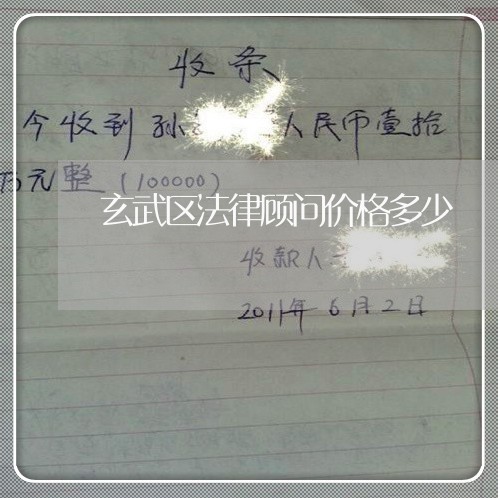 收条
今收到孙 人民币壹拾
万元整（100000）
玄武区法律顾问价格多少
收款人
2011年6月2日